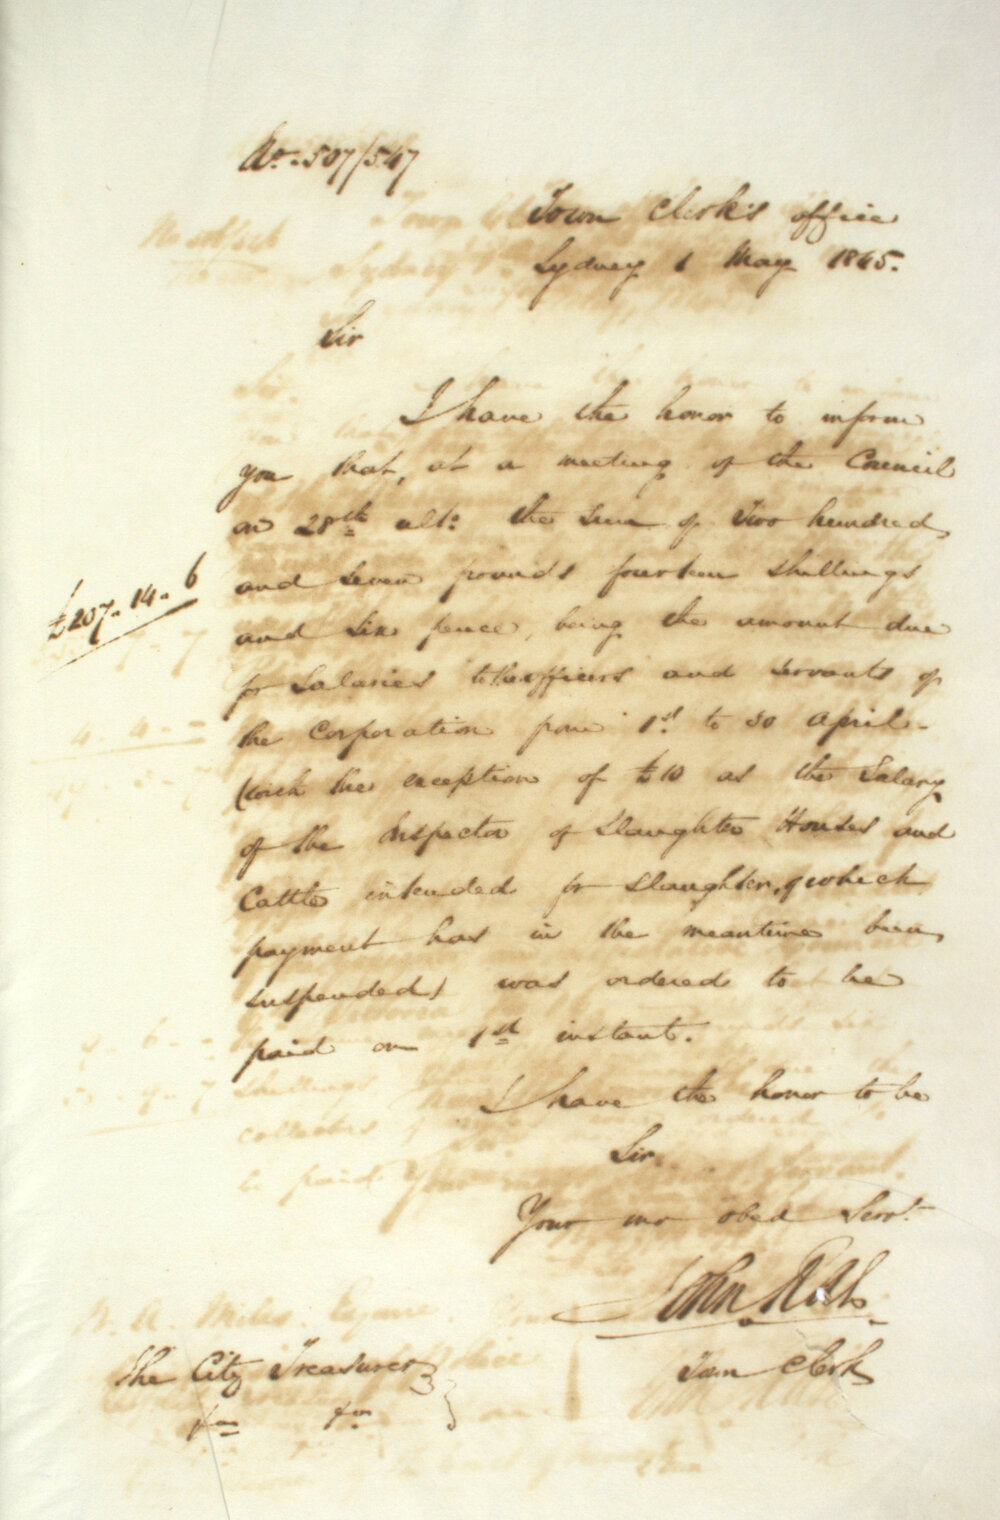 No. 507/547
Town Clerk's office
Sydney 1 May 1845.
Sir
I have the honor to inform
you that, at a meeting of the Council
on 28th ulto. the sum of Two hundred
£207.14.6
and seven pounds fourteen shillings
and six pence, being the amount due
for Salaries to the officers and servants of
the Corporation from 1st to 30 April
(with the exception of £10 as the Salary
of the Inspector of Slaughter Houses and
Cattle intended for slaughter, of which
payment has in the meantime been
suspended) was ordered to be
paid on 1st instant.
I have the honor to be
Sir
Your mo obed Servt.
John
Town Clerk
The City Treasurer